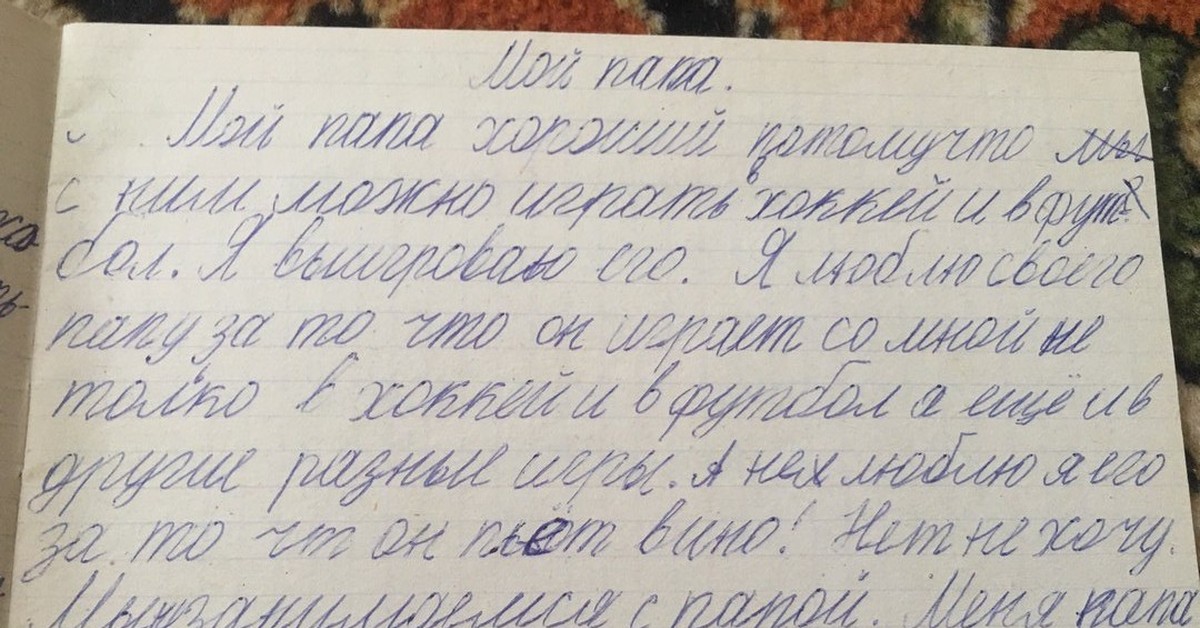 Мой папа.
Мой папа хороший потомучто мы
с ним можно играть хоккей и в фут-
бол. Я выигроваю его. Я люблю своего
папу за то что он играет со мной не
толко в хоккей и в футбол а ещё и в
другие разные игры. А не люблю я его
за то что он пьёт вино! Нет не хочу.
Мы занимаемся с папой. Меня папа